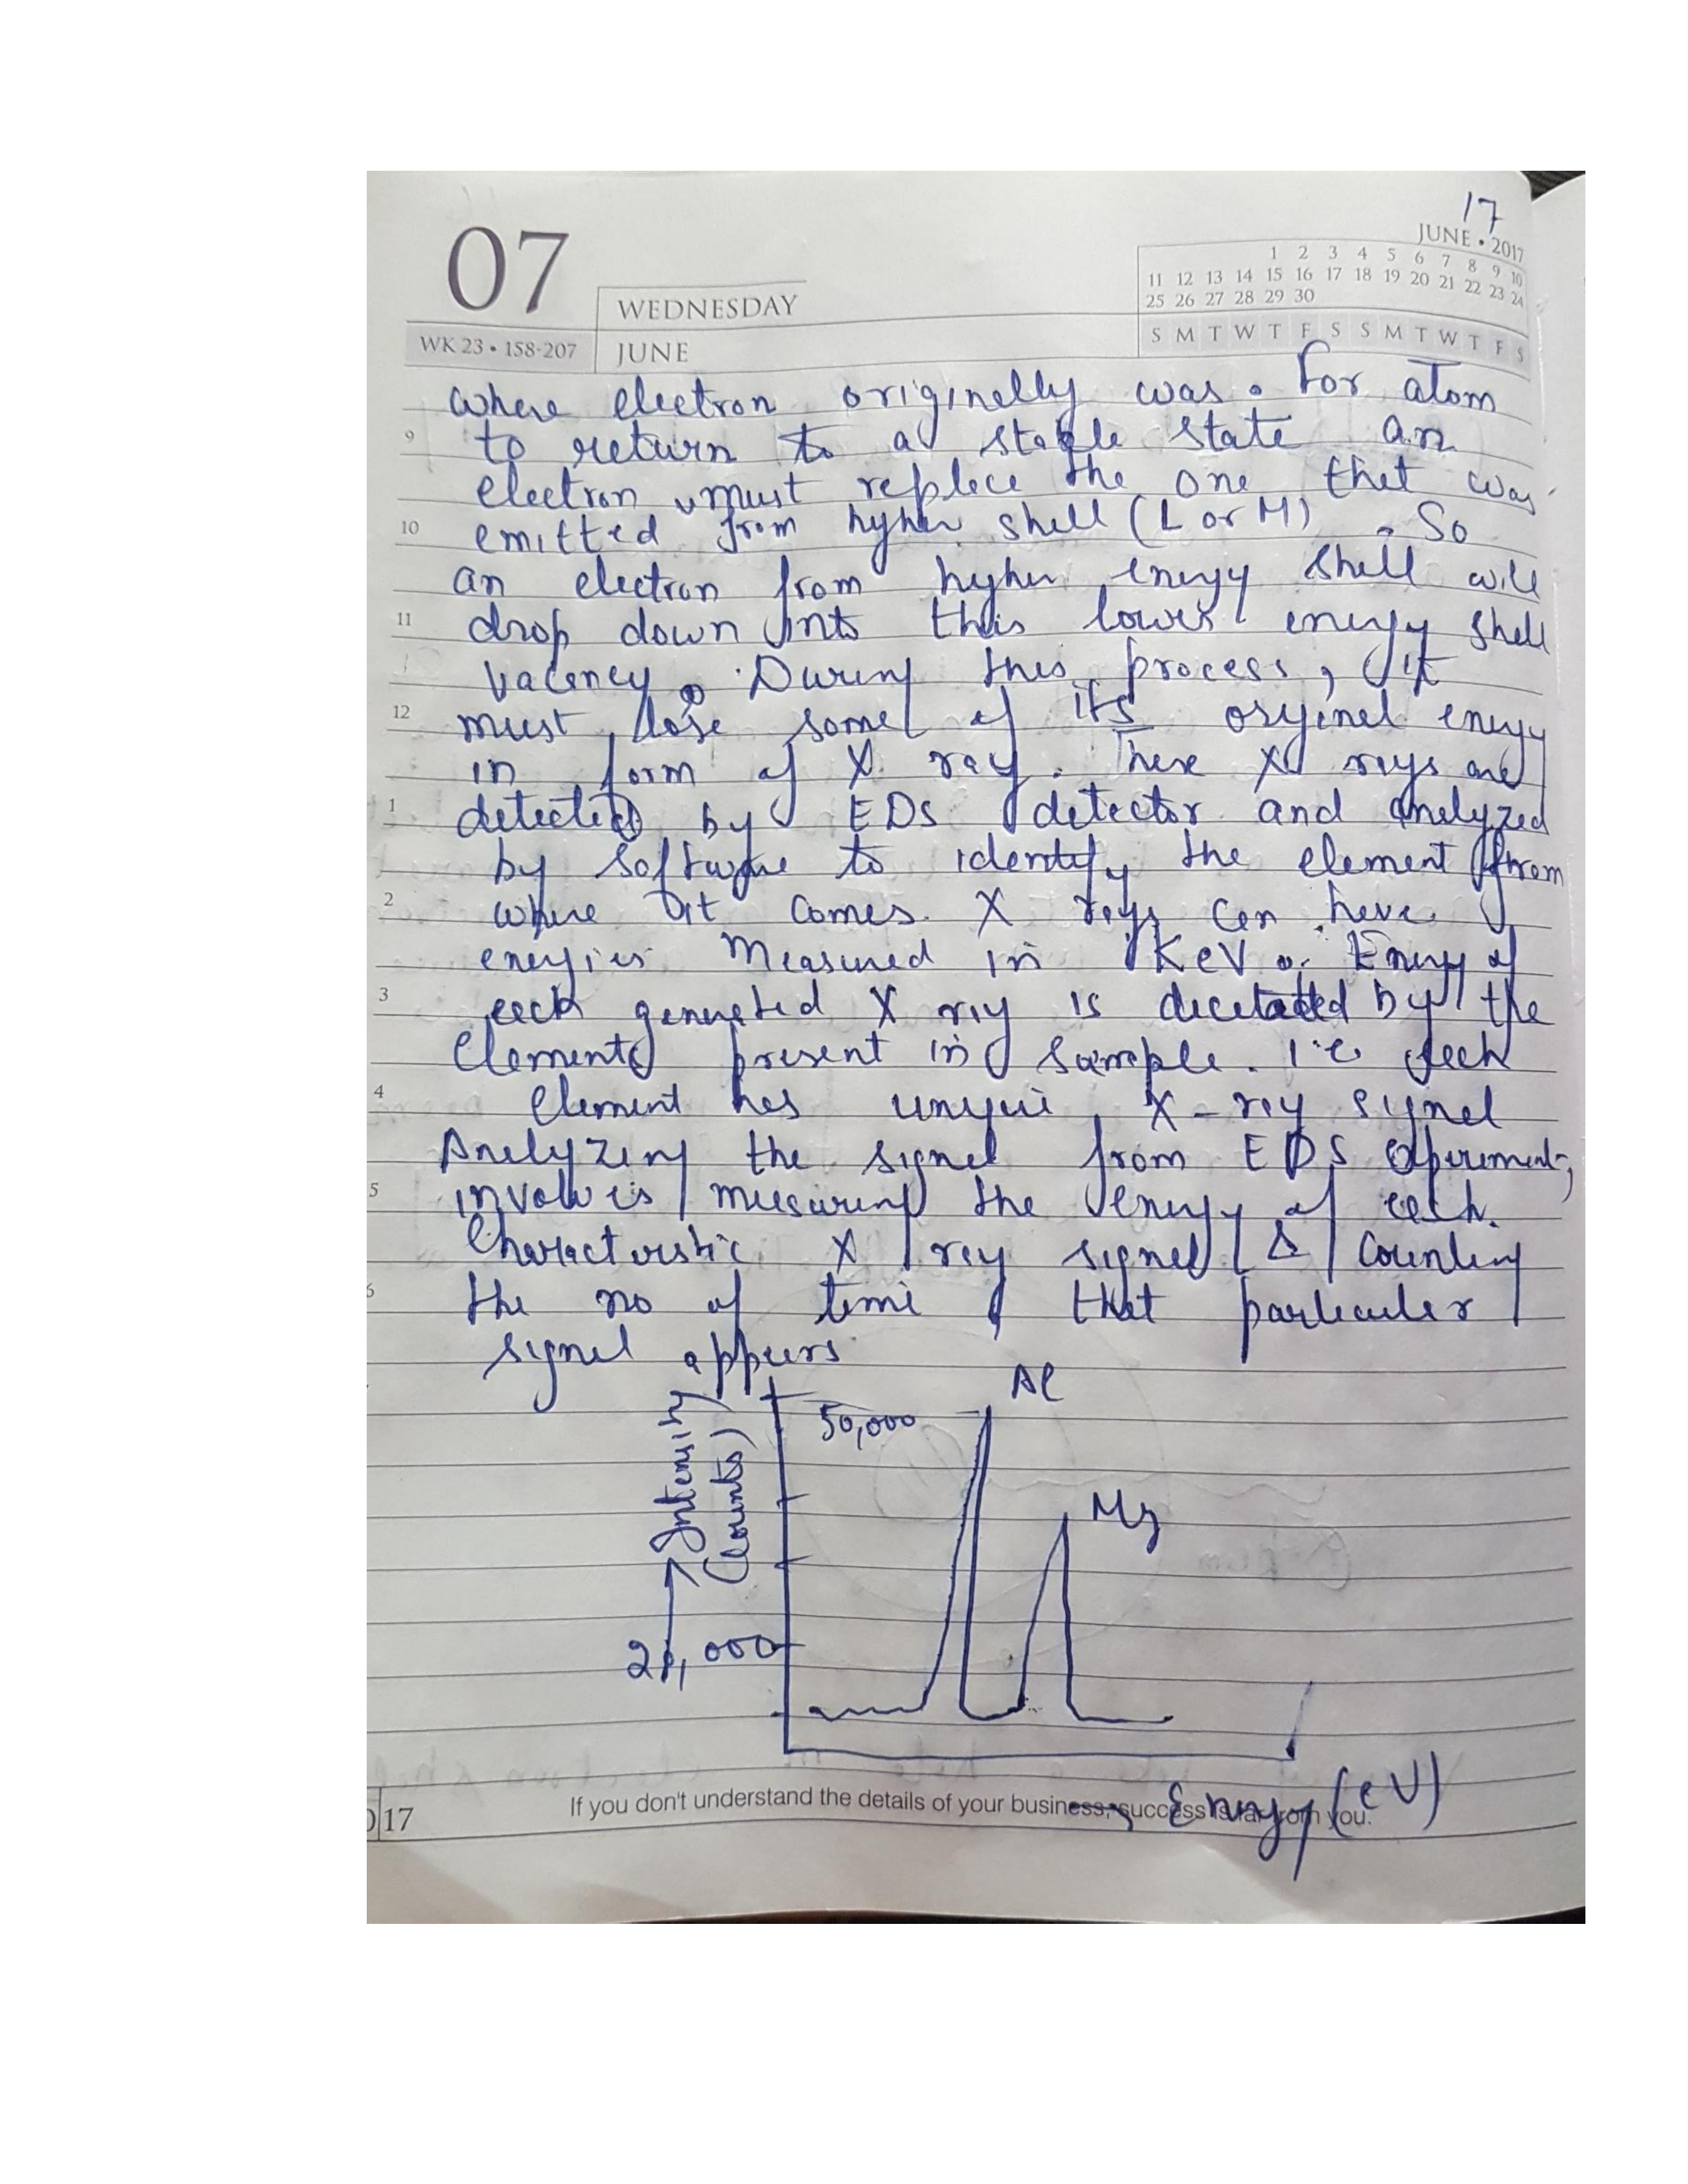 17
07
JUNE • 2017
1 2 3 4 5 6 7 8 9 10
11 12 13 14 15 16 17 18 19 20 21 22 23 24
25 26 27 28 29 30
WEDNESDAY
S M T W T F S S M T W T F S
WK 23 • 158-207
JUNE
where electron originelly was. For atom
9 to return to a stable state an
electron must replece the one thet was
10 emitted from hyher shell (L or M). So
an electron from hyher energy shell will
11 drop down into this lower energy shell
vacency. During this process, it
12 must lose some of its orygenel energy
in form of X ray. These X rays are
1 detected by EDS detector and anelyzed
by software to identify the element from
2 where it comes. X rays cen heve
energies Measured in KeV. Energy of
3 eech generated X ray is dicetated by the
Elements present in sample. i.e eech
4 Element hes unique X-ray signel
Anelyzing the signel from EDS experiment,
5 involves measuring the energy of eech
Characteristic X ray signel & counting
6 the no of time that particuler
signel appears
Al
50,000
Intensity
(Counts)
Mg
20,000
Energy (eV)
17
If you don't understand the details of your business, success is far from you.